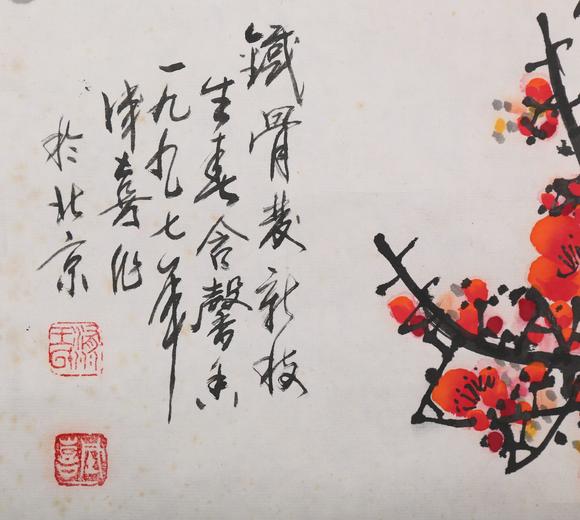 鐵骨發新枝
生春含馨香
一九九七年
喜作
於北京